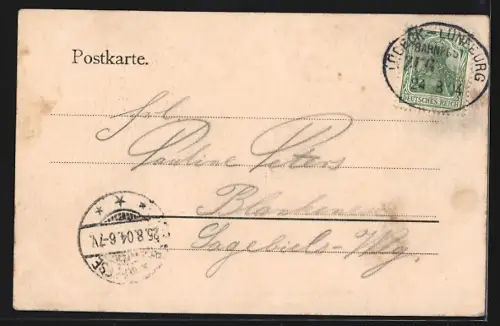 Postkarte.
LÜBECK - LÜNEBURG
BAHNPOST
ZUG
24 8 04
DEUTSCHES REICH
Frl.
Pauline Peters
Blankenese
Sagebiels-Weg.
25.8.04.6-7V.